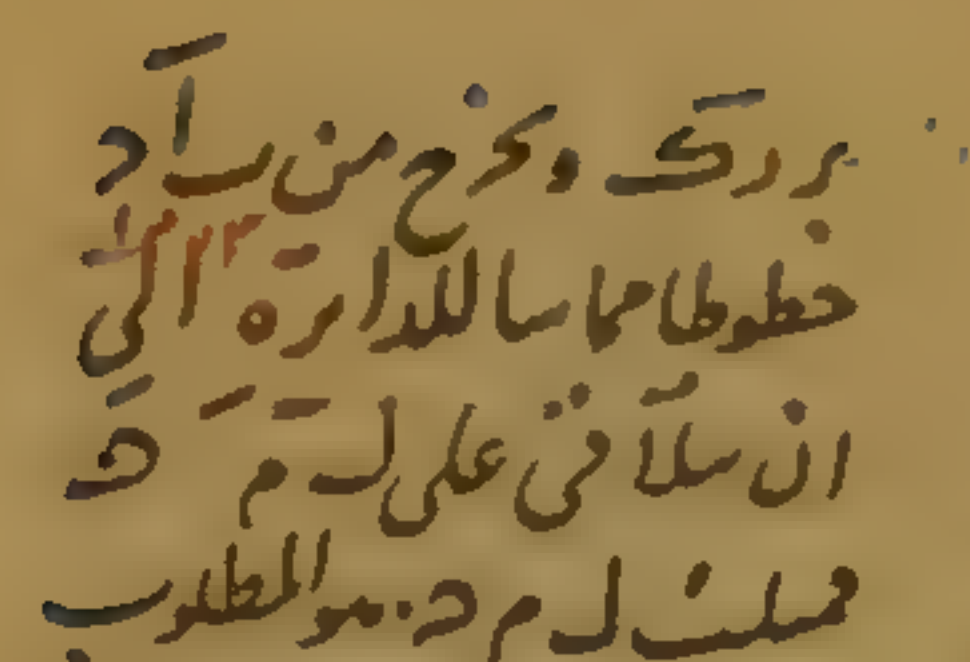 ب ر د ك ونخرج من ب ا د
خطوطا مماسا للدايرة الى
ان يتلاقى على ل م ه
فمثلث ل م ه هو المطلوب